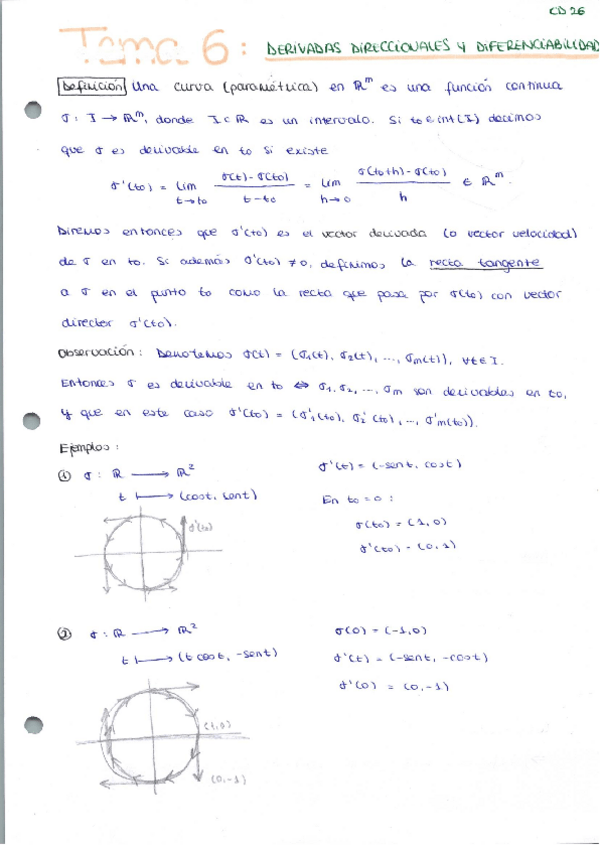 CD 26
Tema 6: DERIVADAS DIRECCIONALES Y DIFERENCIABILIDAD
Definición Una curva (paramétrica) en ℝᵐ es una función continua
σ: I → ℝᵐ, donde I ⊂ ℝ es un intervalo. Si to ∈ int(I) decimos
que σ es derivable en to si existe
σ'(to) = lim_{t→to} (σ(t)-σ(to))/(t-to) = lim_{h→0} (σ(to+h)-σ(to))/h ∈ ℝᵐ.
Diremos entonces que σ'(to) es el vector derivada (o vector velocidad)
de σ en to. Si además σ'(to) ≠ 0, definimos la recta tangente
a σ en el punto to como la recta que pasa por σ(to) con vector
director σ'(to).
Observación: Denotemos σ(t) = (σ₁(t), σ₂(t), ..., σm(t)), ∀t∈I.
Entonces σ es derivable en to ⇔ σ₁, σ₂, ..., σm son derivables en to,
y que en este caso σ'(to) = (σ₁'(to), σ₂'(to), ..., σ'm(to)).
Ejemplos:
① σ: ℝ → ℝ² σ'(t) = (-sent, cost)
t ↦ (cost, sent) En to = 0:
σ(to) = (1,0)
σ'(to)
σ'(to) = (0,1)
② σ: ℝ → ℝ² σ(0) = (-1,0)
t ↦ (t cost, -sent) σ'(t) = (-sent, -cost)
σ'(0) = (0,-1)
(1,0)
(0,-1)